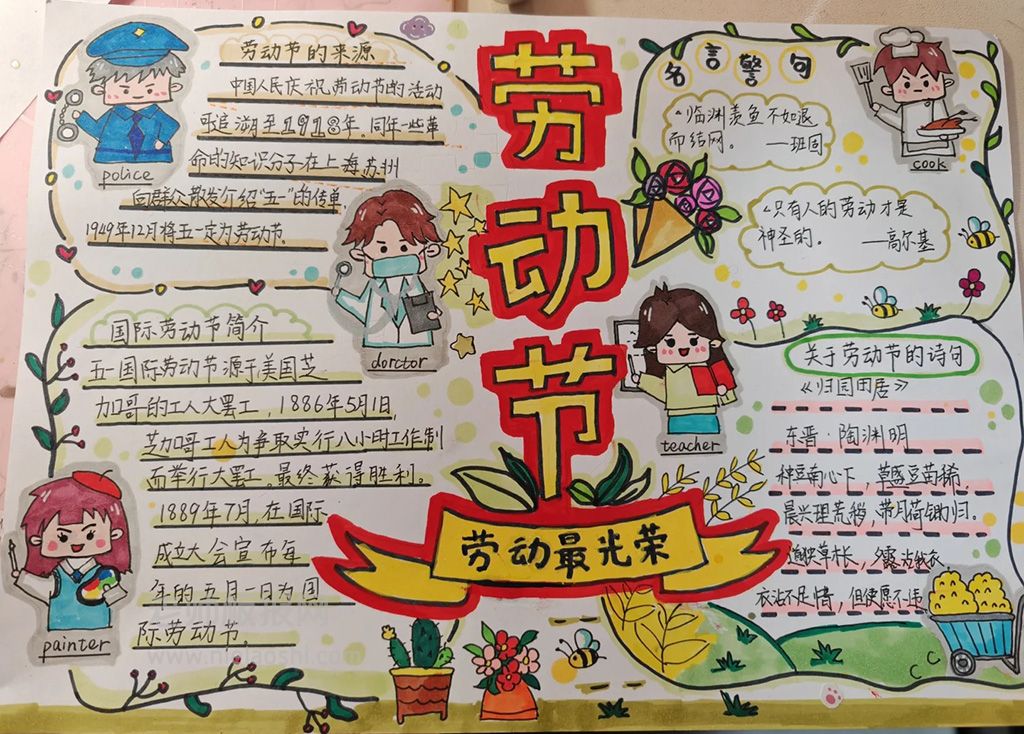 劳动节的来源
中国人民庆祝劳动节的活动
可追溯至1918年。同年一些革
命的知识分子在上海苏州
向群众散发介绍"五一"的传单。
1949年12月将五一定为劳动节。
police
国际劳动节简介
五一国际劳动节源于美国芝
加哥的工人大罢工，1886年5月1日，
芝加哥工人为争取实行八小时工作制
而举行大罢工，最终获得胜利。
1889年7月，在国际
成立大会宣布每
年的五月一日为国
际劳动节。
painter
dorctor
劳动节
劳动最光荣
名言警句
"临渊羡鱼不如退
而结网。 —班固
"只有人的劳动才是
神圣的。 —高尔基
cook
teacher
关于劳动节的诗句
《归园田居》
东晋·陶渊明
种豆南心下，草盛豆苗稀。
晨兴理荒秽，带月荷锄归。
草木长，夕露沾我衣。
衣沾不足惜，但使愿不违